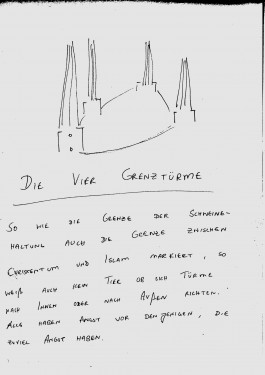 DIE VIER GRENZTÜRME
SO WIE DIE GRENZE DER SCHWEINE-
HALTUNG AUCH DIE GRENZE ZWISCHEN
CHRISTENTUM UND ISLAM MARKIERT, SO
WEIß AUCH KEIN TIER OB SICH TÜRME
NACH INNEN ODER NACH AUßEN RICHTEN.
ALLE HABEN ANGST VOR DENJENIGEN, DIE
ZUVIEL ANGST HABEN.